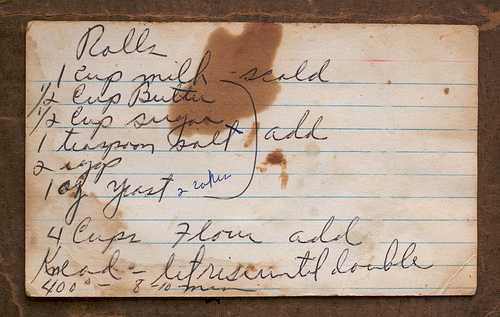 Rolls
1 Cup milk - scald
1/2 Cup Butter
1/2 Cup sugar
1 teaspoon salt add
2 eggs
1 og yeast 2 cakes
4 Cups Flour add
Knead - let rise until double
400° - 8-10 min